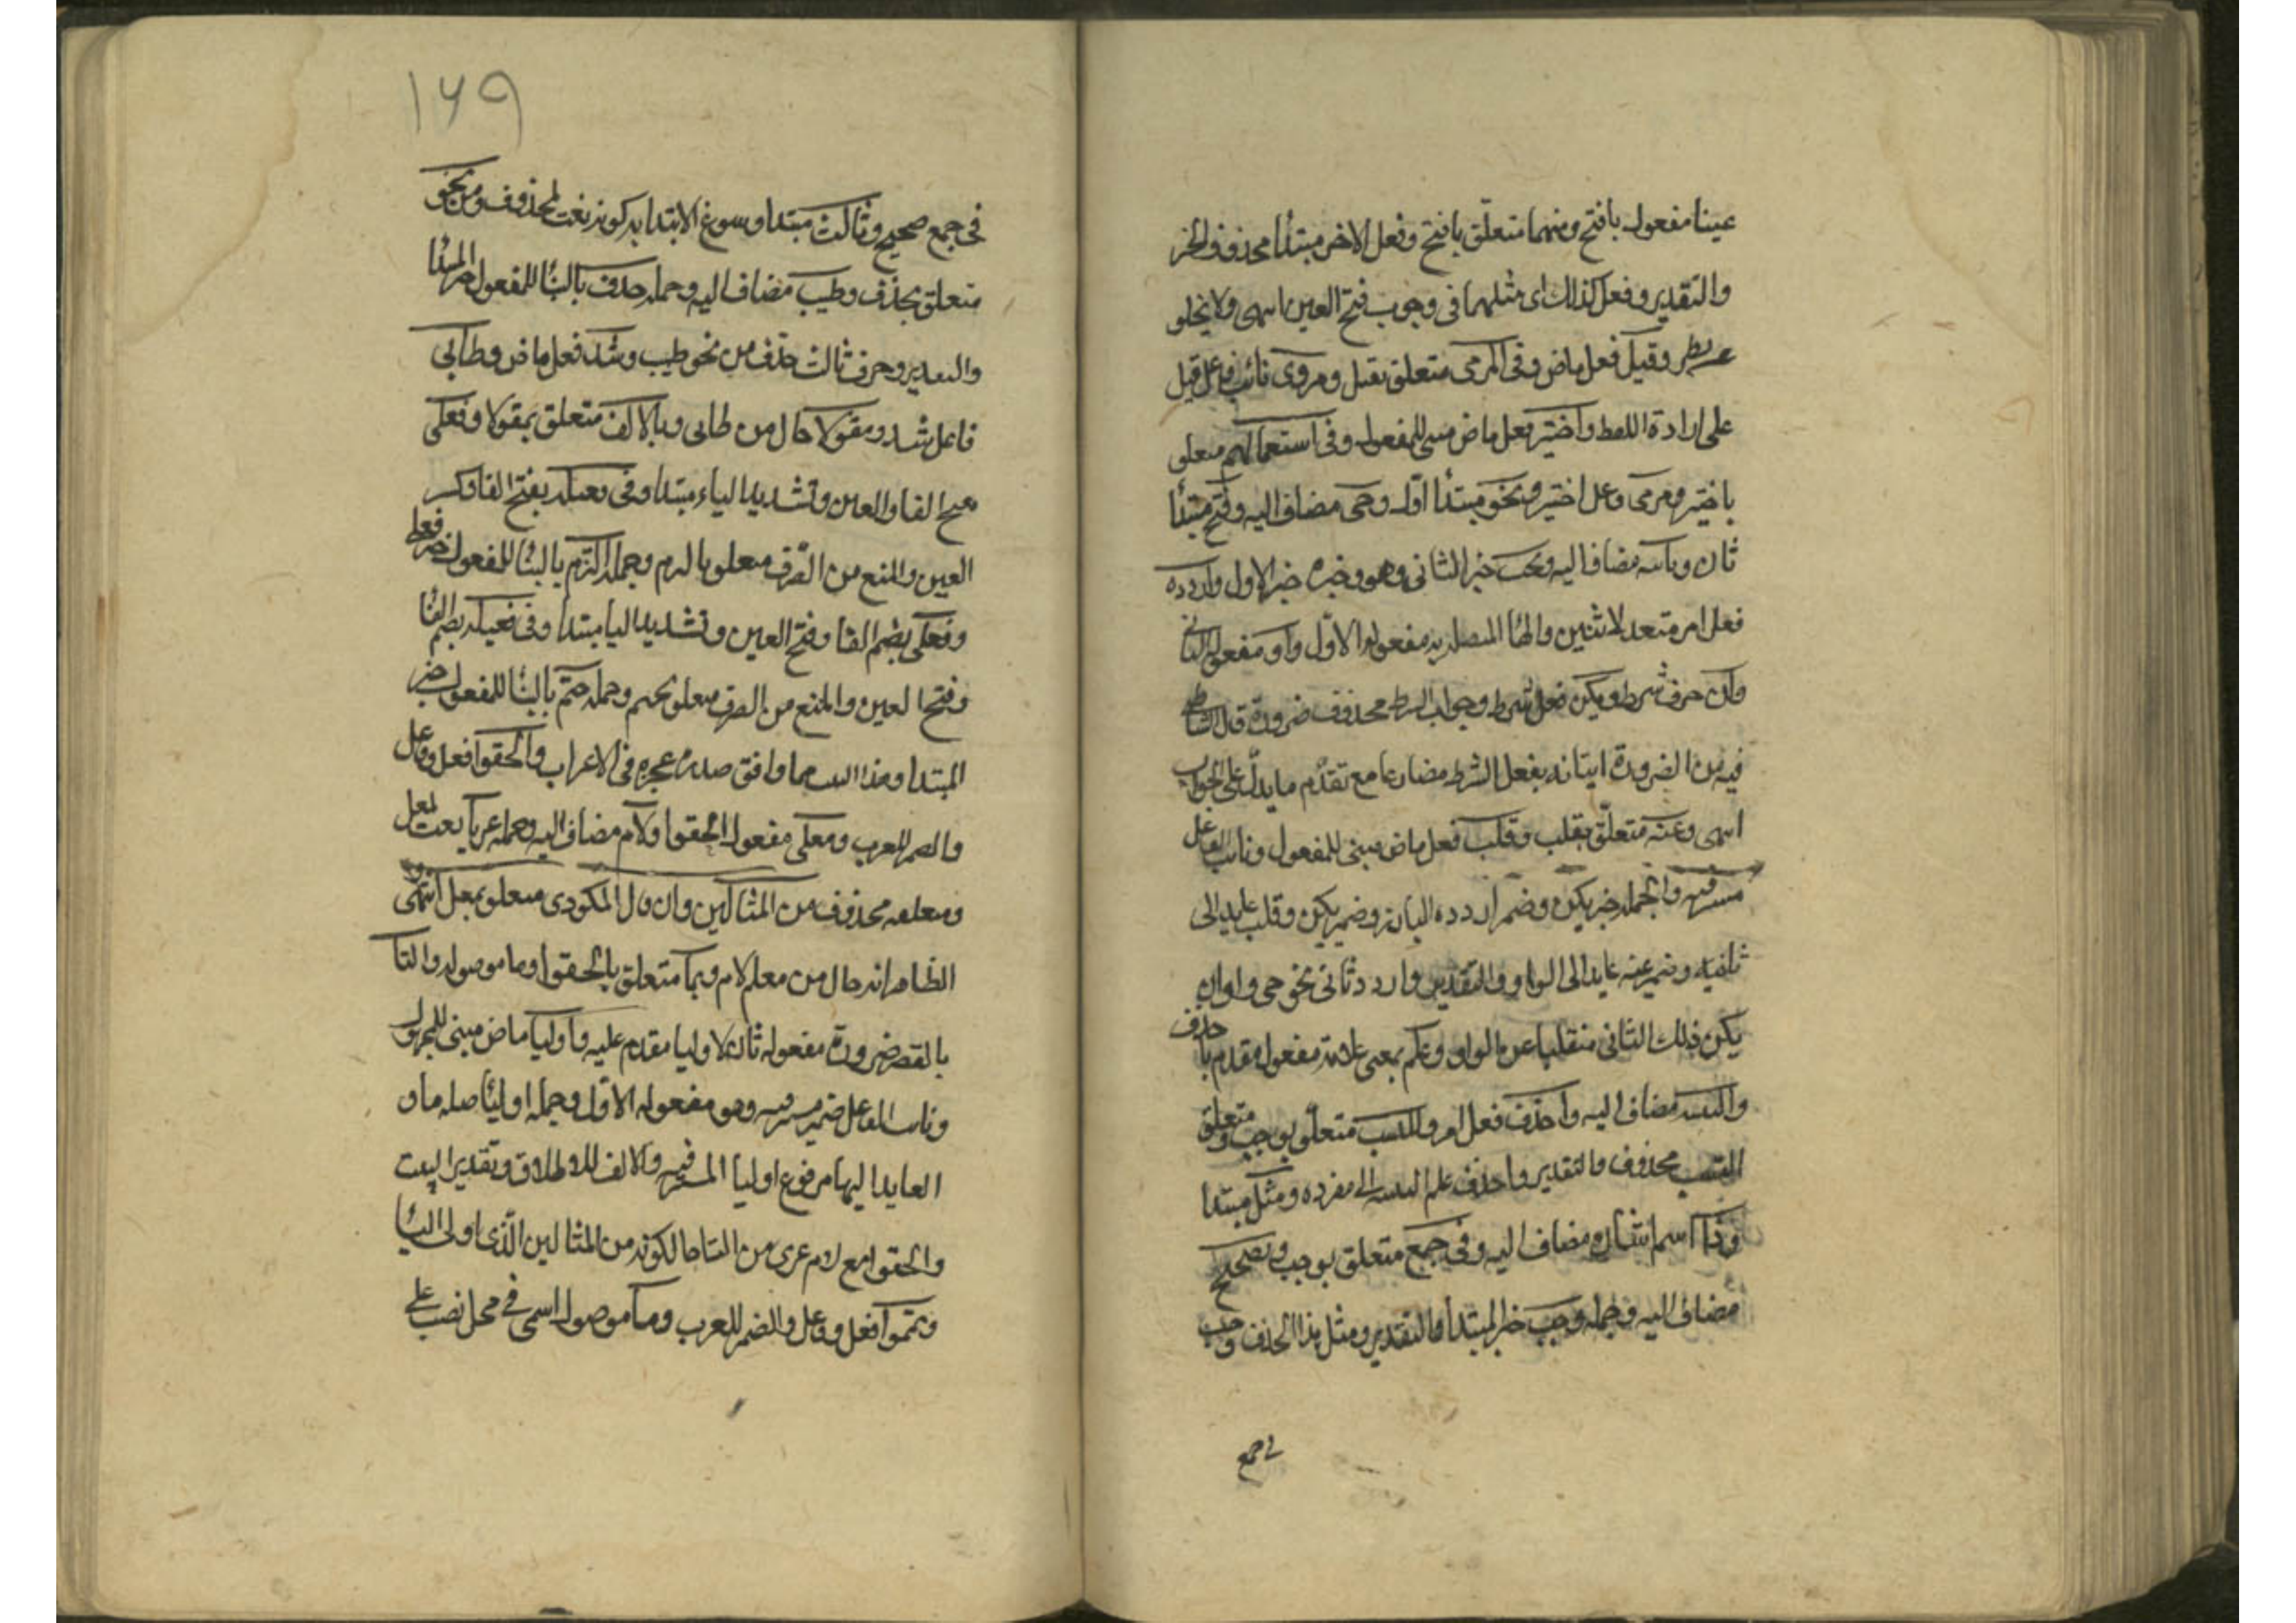 عينا مفعول بافتح ومنهما متعلق بافتح وفعل الاخر مبتدأ محذوف الخبر
والتقدير وفعل كذلك اى مثلهما فى وجوب فتح العين انتهى ولا يخلو
عن نظر وقيل فعل ماض وفى المرمى متعلق بقيل ومرموى نائب فاعل قيل
على ارادة اللفظ واختير فعل ماض مبنى للمفعول وفى استعمالهم متعلق
باختير ومرمى فاعل اختير ونحو مبتدأ اول وحى مضاف اليه وفتح مبتدأ
ثان وثانيه مضاف اليه ويجب خبر الثانى وهو وخبره خبر الاول واردده
فعل امر متعد لاثنين والهاء المتصلة به مفعوله الاول وواو مفعوله الثانى
وان حرف شرط ويكن فعل شرط وجواب الشرط محذوف ضرورة قال الشاطبى
فيه من الضرورة اتيانه بفعل الشرط مضارعا مع تقدم ما يدل على الجواب
انتهى وعنه متعلق بقلب وقلب فعل ماض مبنى للمفعول ونائب الفاعل
مستتر فيه والجملة خبر يكن وضمير اردده البارز وضمير يكن وقلب عايد الى
ثانيه وضمير عنه عايد الى الواو والتقدير واردد ثانى نحو حى واوا ان
يكن ذلك الثانى منقلبا عن الواو وعلم بمعنى علامة مفعول مقدم باحذف
والتثنية مضاف اليه واحذف فعل امر وللنسب متعلق بوجب ومتعلق
النسب محذوف والتقدير واحذف علم التثنية الى مفرده ومثل مبتدا
وذا اسم اشارة مضاف اليه وفى جمع متعلق بوجب وتصحيح
مضاف اليه وجملة وجب خبر المبتدأ والتقدير ومثل هذا الحذف وجب
فى جمع
١٦٩
فى جمع صحيح وثالث مبتدا وسوغ الابتدا به كونه نعت لمحذوف ومن نحو
متعلق بحذف وطيب مضاف اليه وجملة حذف بالبنا للمفعول خبر المبتدا
والتقدير وحرف ثالث حذف من نحو طيب وشذ فعل ماض وطائى
فاعل شذ ومقولا حال من طائى وبالالف متعلق بمقولا وفعلى
بفتح الفا والعين وتشديد الياء مبتدا وفى فعيلة بفتح الفا وكسر
العين والمنع من الصرف متعلق بالتزم وجملة التزم بالبنا للمفعول خبر فعلى
وفعلى بضم الفا وفتح العين وتشديد اليا مبتدا وفى فعيلة بضم الفا
وفتح العين والمنع من الصرف متعلق بحتم وجملة حتم بالبنا للمفعول خبر
المبتدا وهذا البيت مما وافق صدره عجزه فى الاعراب والحقوا فعل وفاعل
والضمير للعرب ومعلى مفعول الحقوا ولام مضاف اليه وجملة عريا نعت لمعل
ومتعلقه محذوف من المثالين وان قال المكودى متعلق بمعل انتهى و
الظاهر انه حال من معل لام وبما متعلق بالحقوا وما موصولة والتا
بالقصر ضرورة مفعول ثان لاوليا مقدم عليه واوليا ماض مبنى للمجهول
ونائب الفاعل ضمير مستتر فيه وهو مفعوله الاول وجملة اوليا صلة ما و
العايد اليها مرفوع اوليا المستتر فيه والالف للاطلاق وتقدير البيت
والحقوا مع لام عرى من التا حال كونه من المثالين الذى اولى التا
وتمموا فعل وفاعل والضمير للعرب وما موصول اسمى فى محل نصب على